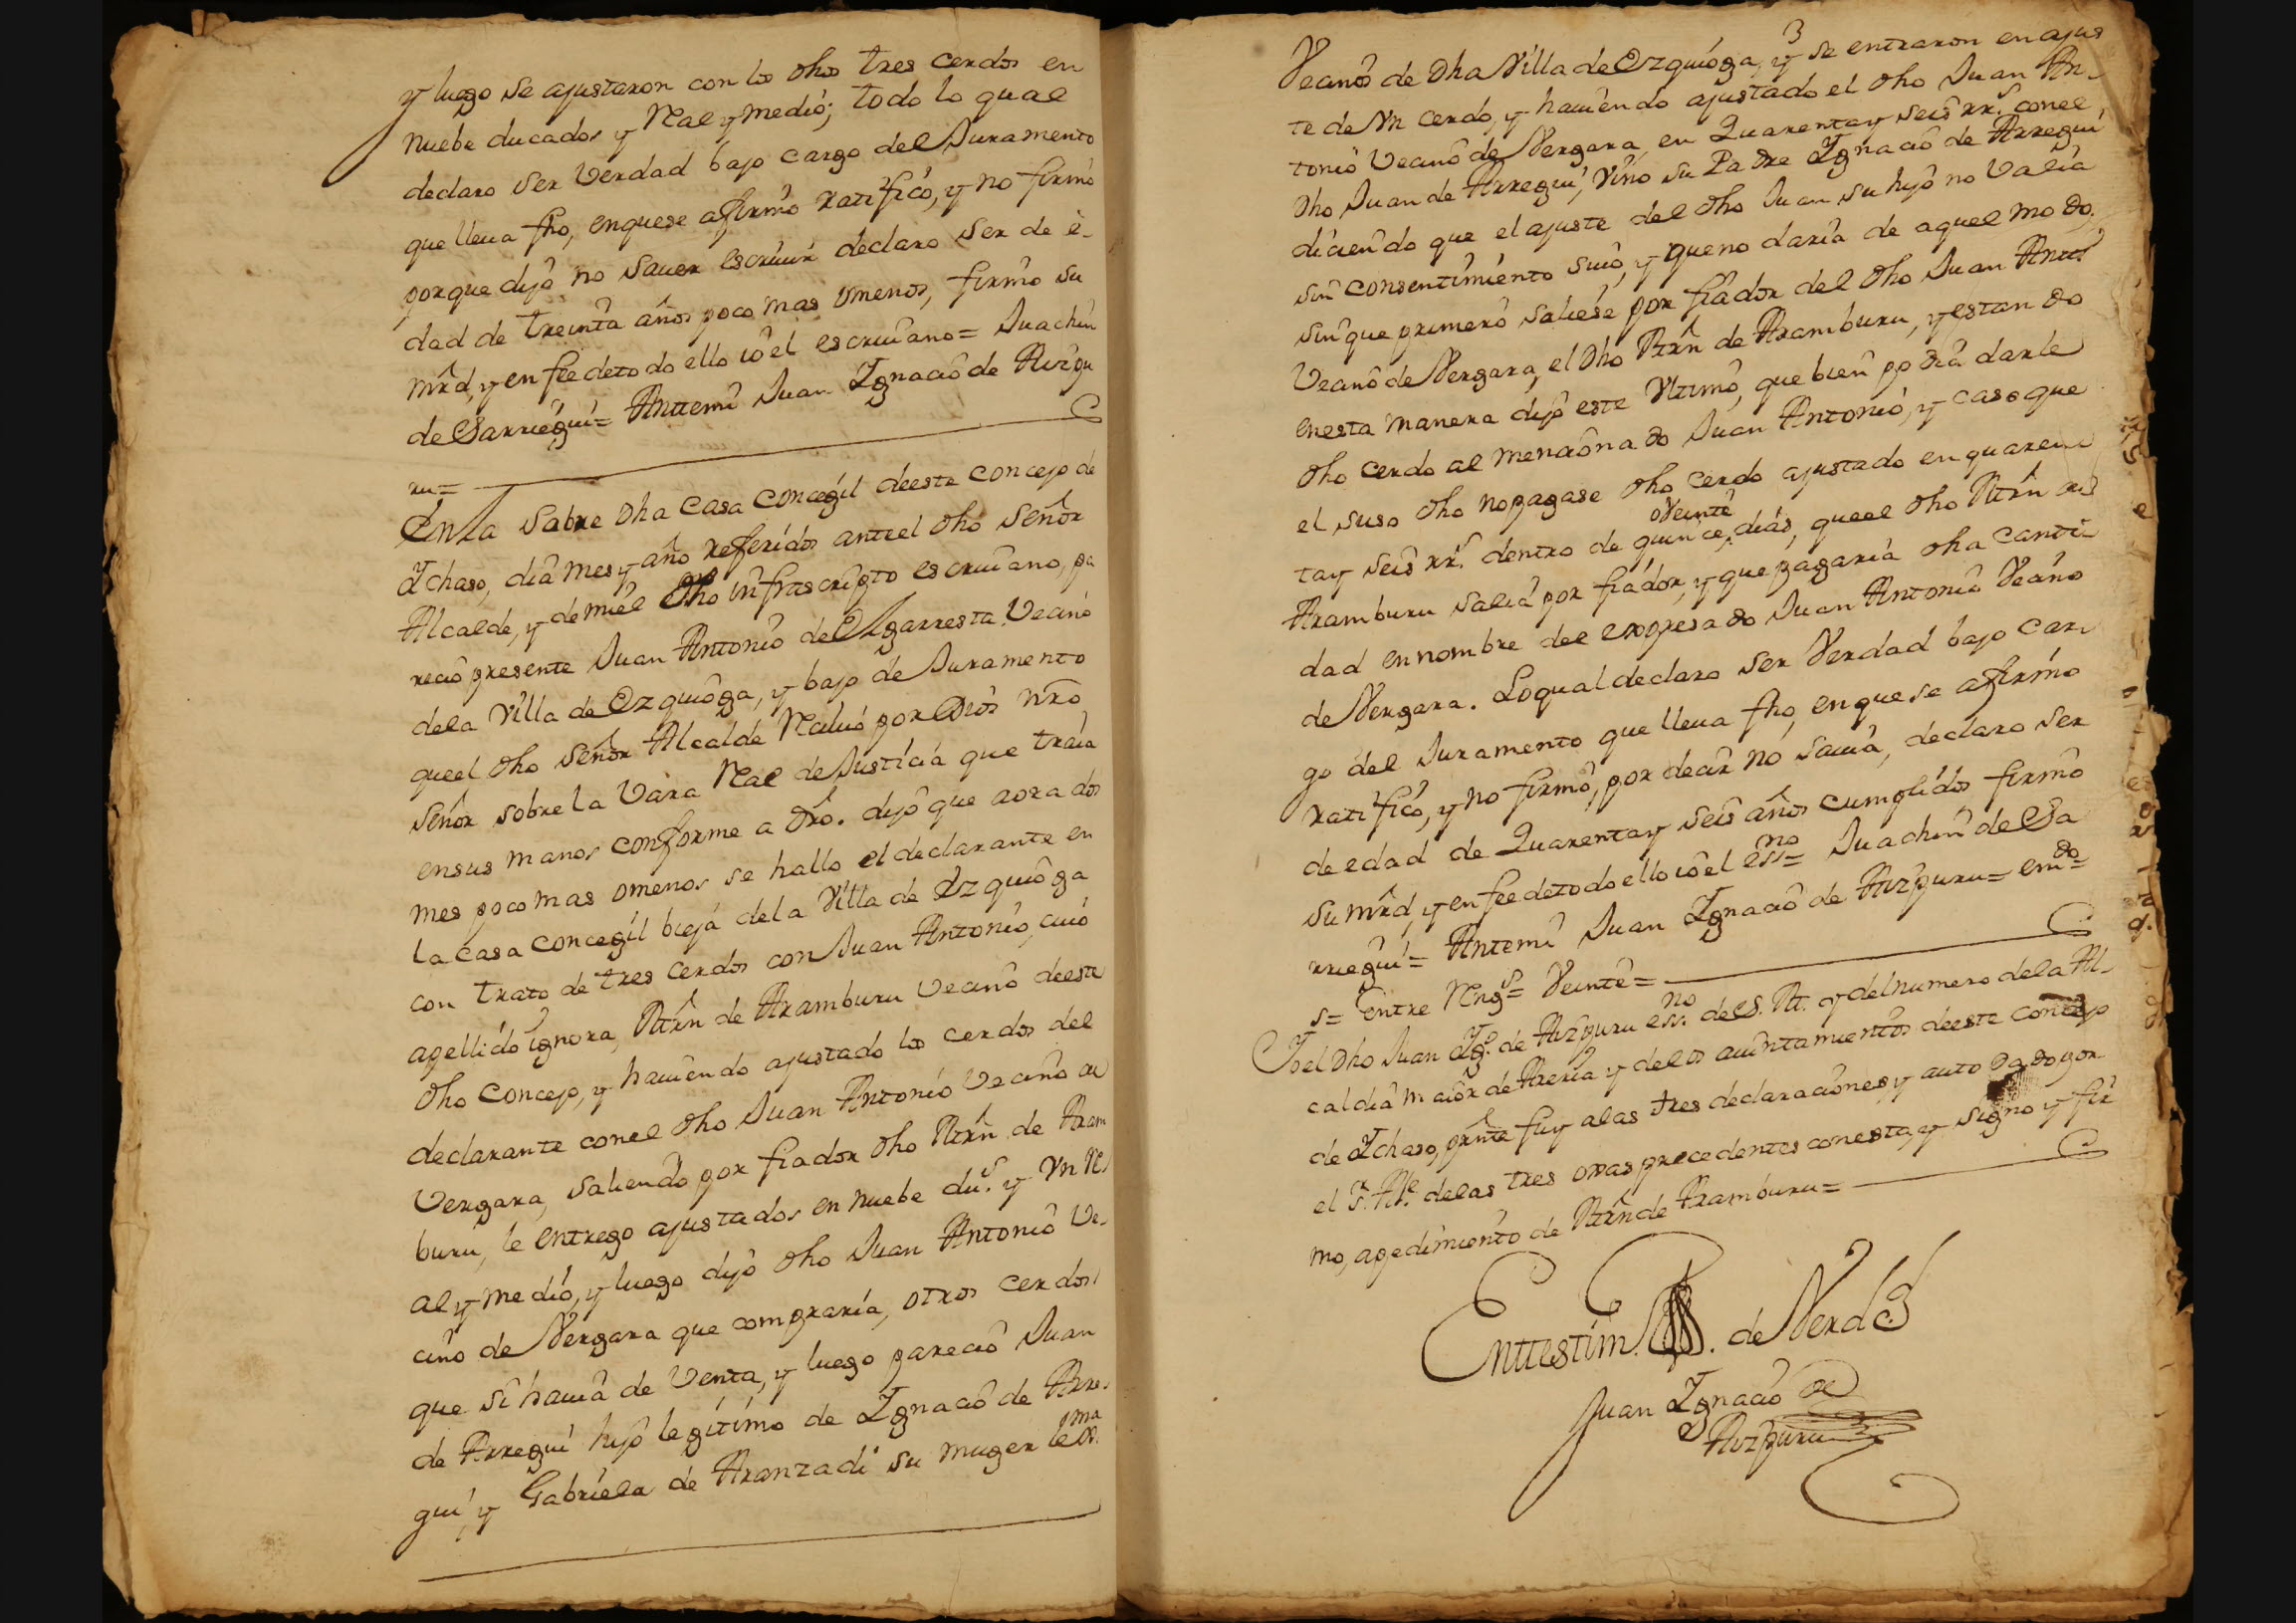 y luego se ajustaron con los dhos tres cerdos en
nuebe ducados y Real y medio; todo lo qual
declaro ser verdad bajo cargo del Juramento
que lleua fho, en que se afirmo ratifico, y no firmo
porque dijo no sauer escriuir declaro ser de e-
dad de treinta años poco mas omenos, firmo su
mrd, y en fee de todo ello io el escriuano= Juachin
de Sarriegui= Anttemi Juan Ignacio de Aizpu
ru=
En La Sabre dha Casa Concegil de este concejo de
Ichaso, dia mes y año referidos antel dho Señor
Alcalde, y de mi el dho infrascripto escriuano, pa
recio presente Juan Antonio de Elgarresta Vecino
de la Villa de Ezquioga, y bajo de Juramento
que el dho Señor Alcalde Reciuio por Dios nro
Señor sobre la Vara Real de Justicia que traia
en sus manos conforme a dro. dijo que aora dos
mes poco mas omenos se hallo el declarante en
la casa concegil bieja de la Villa de Ezquioga
con trato de tres cerdos con Juan Antonio, cuio
apellido ignora, Mrn de Aramburu vecino de este
dho Concejo, y hauiendo ajustado los cerdos del
declarante con el dho Juan Antonio Vecino de
Vergara, saliendo por fiador dho Mrn de Aram
buru, le entrego ajustados en nuebe dus. y Vn Re
al y medio, y luego dijo dho Juan Antonio Ve-
cino de Vergara que compraria, otros cerdos
que si hauia de Venta, y luego parecio Juan
de Arregui hijo legitimo de Ignacio de Arre-
gui, y Gabriela de Aranzadi su muger lexma.
3
Vecinos de dha Villa de Ezquioga, y se entraron en ajus
te de Vn cerdo, y hauiendo ajustado el dho Juan An-
tonio Vecino de Vergara, en Quarenta y seis rrs. con el
dho Juan de Arregui, vino su Padre Ignacio de Arregui
diciendo que el ajuste del dho Juan su hijo no Valia
sin consentimiento suio, y que no daria de aquel modo,
sin que primero saliese por fiador del dho Juan Anto
Vecino de Vergara, el dho Mrn de Aramburu, y estando
en esta manera dijo este Vltimo, que bien podia darle
dho cerdo al mencionado Juan Antonio, y caso que
el suso dho no pagase dho cerdo ajustado en quaren
oveinte
tay seis rrs. dentro de quince, dias, que el dho Mrn de
Aramburu salia por fiador, y que pagaria dha canti-
dad en nombre del expresado Juan Antonio Vecino
de Vergara. Lo qual declaro ser Verdad bajo car-
go del Juramento que lleua fho, en que se afirmo
ratifico, y no firmo, por decir no sauia, declaro ser
de edad de Quarenta y seis años cumplidos firmo
su mrd, y en fee de todo ello io el essno= Juachin de Sa
rriegui= Antemi Juan Ignacio de Aizpuru= emdo=
s= Entre Rengs= Veinte=
Io el dho Juan Igo. de Aizpuru esno. de S. M. y del numero de la Al-
caldia maior de Areria y de los aiuntamientos de este concejo
de Ichaso, prnte fuy alas tres declaraciones y auto dado por
el Sr. Alle. de las tres oxas precedentes con esta, y signo y fir
mo, a pedimiento de Mrn de Aramburu=
En ttestim. de Verdad
Juan Ignacio de
Aizpuru